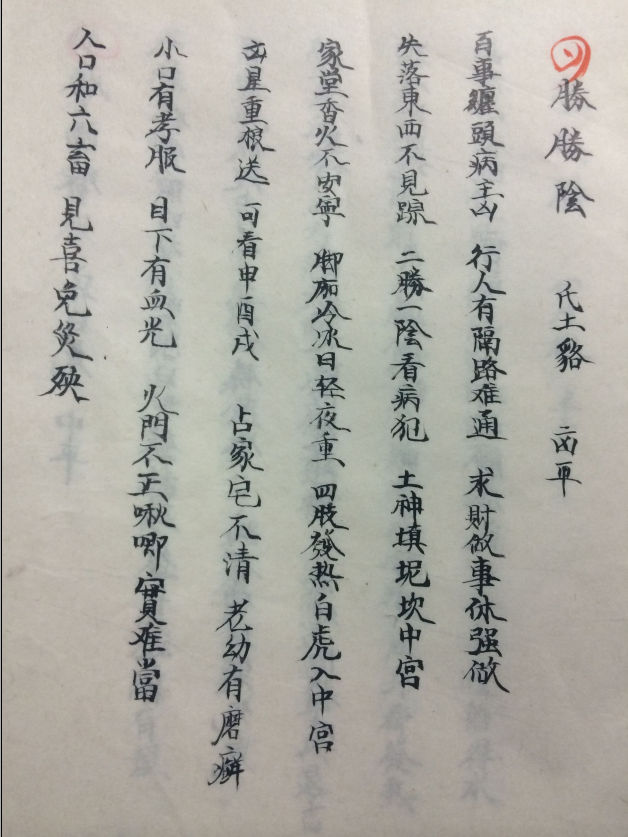 勝勝陰 氐土貉 凶平
百事纏頭病主凶 行人有隔路难通 求財做事休强做
失落東西不見踪 二勝一陰看病犯 土神填坭坎中宮
家堂香火不安寧 脚冷冰日轻夜重 四肢發热白虎入中宮
星重根送 可看申酉戍 占家宅不清 老幼有磨
小口有孝服 目下有血光 火門不正啾唧實难當
人口和六畜 見喜免災殃